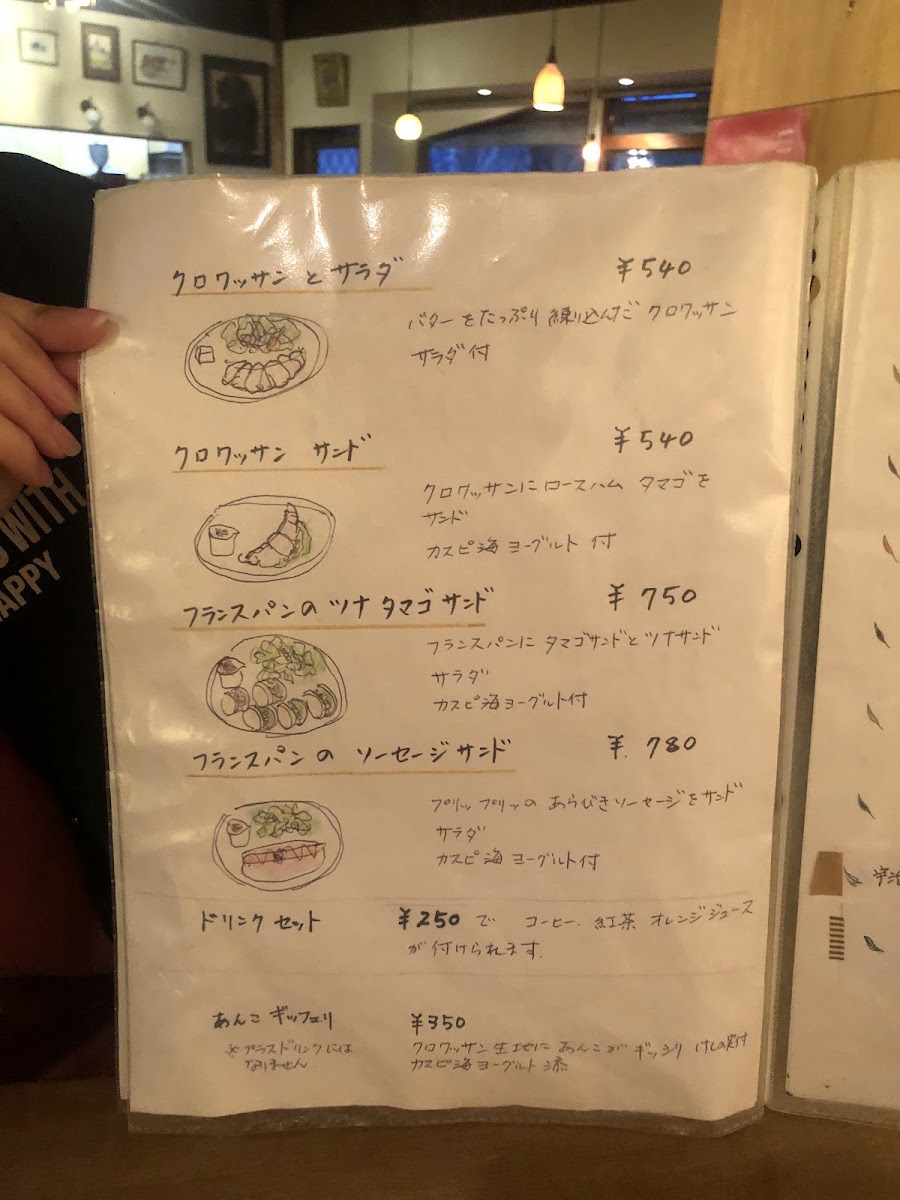 クロワッサン と サラダ ¥540
バターをたっぷり練り込んだ クロワッサン
サラダ付
クロワッサン サンド ¥540
クロワッサンに ロースハム タマゴを
サンド
カスピ海ヨーグルト 付
フランスパンの ツナ タマゴ サンド ¥750
フランスパンに タマゴサンドと ツナサンド
サラダ
カスピ海ヨーグルト付
フランスパンの ソーセージ サンド ¥.780
プリップリッの あらびきソーセージを サンド
サラダ
カスピ海 ヨーグルト付
ドリンク セット ¥250 で コーヒー. 紅茶 オレンジジュース
が 付けられます.
あんこ ギッフェリ ¥350
※プラスドリンクには
なりません
クロワッサン生地に あんこが ギッシリ けしの実付
カスピ海 ヨーグルト 添
WITH
HAPPY